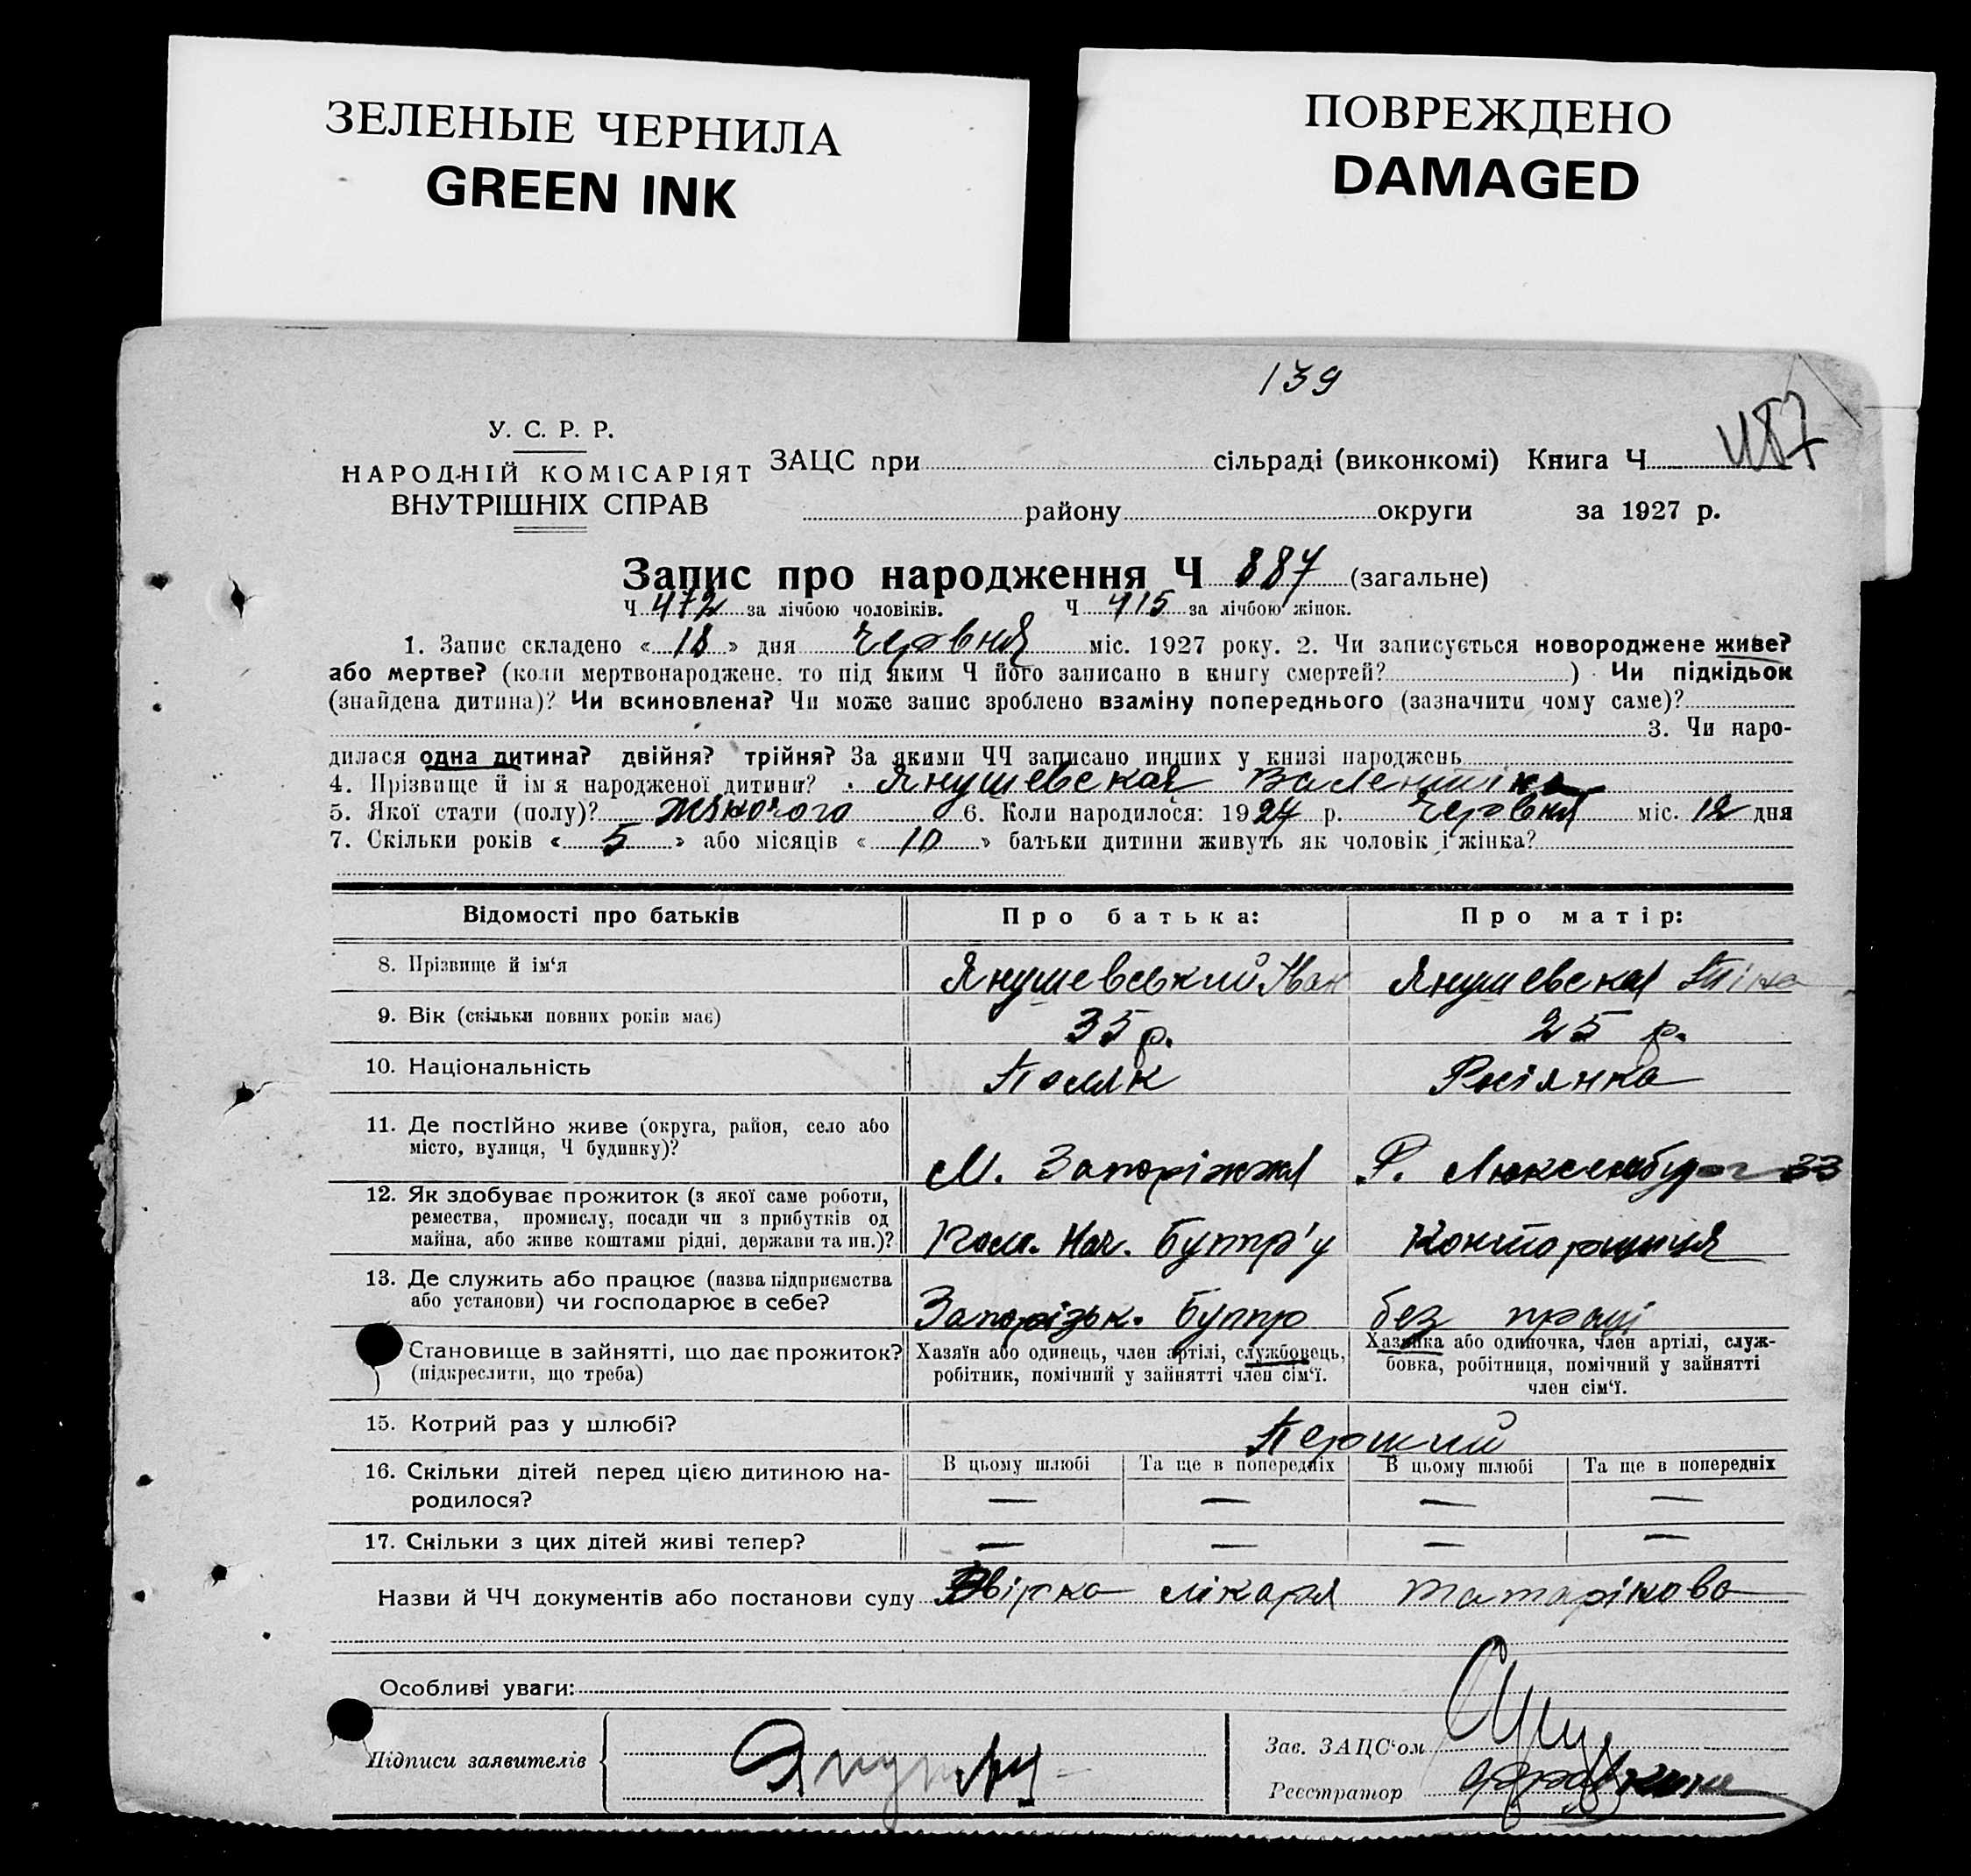 ЗЕЛЕНЫЕ ЧЕРНИЛА
GREEN INK
ПОВРЕЖДЕНО
DAMAGED
139
У. С. Р. Р.
НАРОДНІЙ КОМІСАРІЯТ
ВНУТРІШНІХ СПРАВ
ЗАЦС при сільраді (виконкомі) Книга Ч
району округи за 1927 р.
Запис про народження Ч 887 (загальне)
Ч 472 за лічбою чоловіків. Ч 415 за лічбою жінок.
1. Запис складено « 18 » дня червня міс. 1927 року. 2. Чи записується новороджене живе?
або мертве? (коли мертвонароджене, то під яким Ч його записано в книгу смертей? ) Чи підкідьок
(знайдена дитина)? Чи всиновлена? Чи може запис зроблено взаміну попереднього (зазначити чому саме)?
3. Чи наро-
дилася одна дитина? двійня? трійня? За якими ЧЧ записано инших у книзі народжень
4. Прізвище й ім'я народженої дитини? Янушевская Валентіна
5. Якої стати (полу)? жіночого 6. Коли народилося: 1927 р. червня міс. 12 дня
7. Скільки років « 5 » або місяців « 10 » батьки дитини живуть як чоловік і жінка?
Відомості про батьків Про батька: Про матір:
8. Прізвище й ім'я Янушевський Іван Янушевская
9. Вік (скільки повних років має) 35 р. 25 р.
10. Національність Поляк Росіянка
11. Де постійно живе (округа, район, село або
місто, вулиця, Ч будинку)? М. Запоріжжя Р. Люксембург 33
12. Як здобуває прожиток (з якої саме роботи,
ремества, промислу, посади чи з прибутків од
майна, або живе коштами рідні, держави та ин.)? Пом. Нач. Бупр'у Конторщиця
13. Де служить або працює (назва підприємства
або установи) чи господарює в себе? Запорізьк. Бупр без праці
Становище в зайнятті, що дає прожиток?
(підкреслити, що треба)
Хазяїн або одинець, член артілі, службовець,
робітник, помічний у зайнятті член сім'ї.
Хазяйка або одиночка, член артілі, служ-
бовка, робітниця, помічний у зайнятті
член сім'ї.
15. Котрий раз у шлюбі? Перший
16. Скільки дітей перед цією дитиною на-
родилося?
В цьому шлюбі Та ще в попередніх В цьому шлюбі Та ще в попередніх
— — — —
17. Скільки з цих дітей живі тепер? — — — —
Назви й ЧЧ документів або постанови суду Двірка лікаря Татарінова
Особливі уваги:
Підписи заявителів
Зав. ЗАЦС'ом
Реєстратор